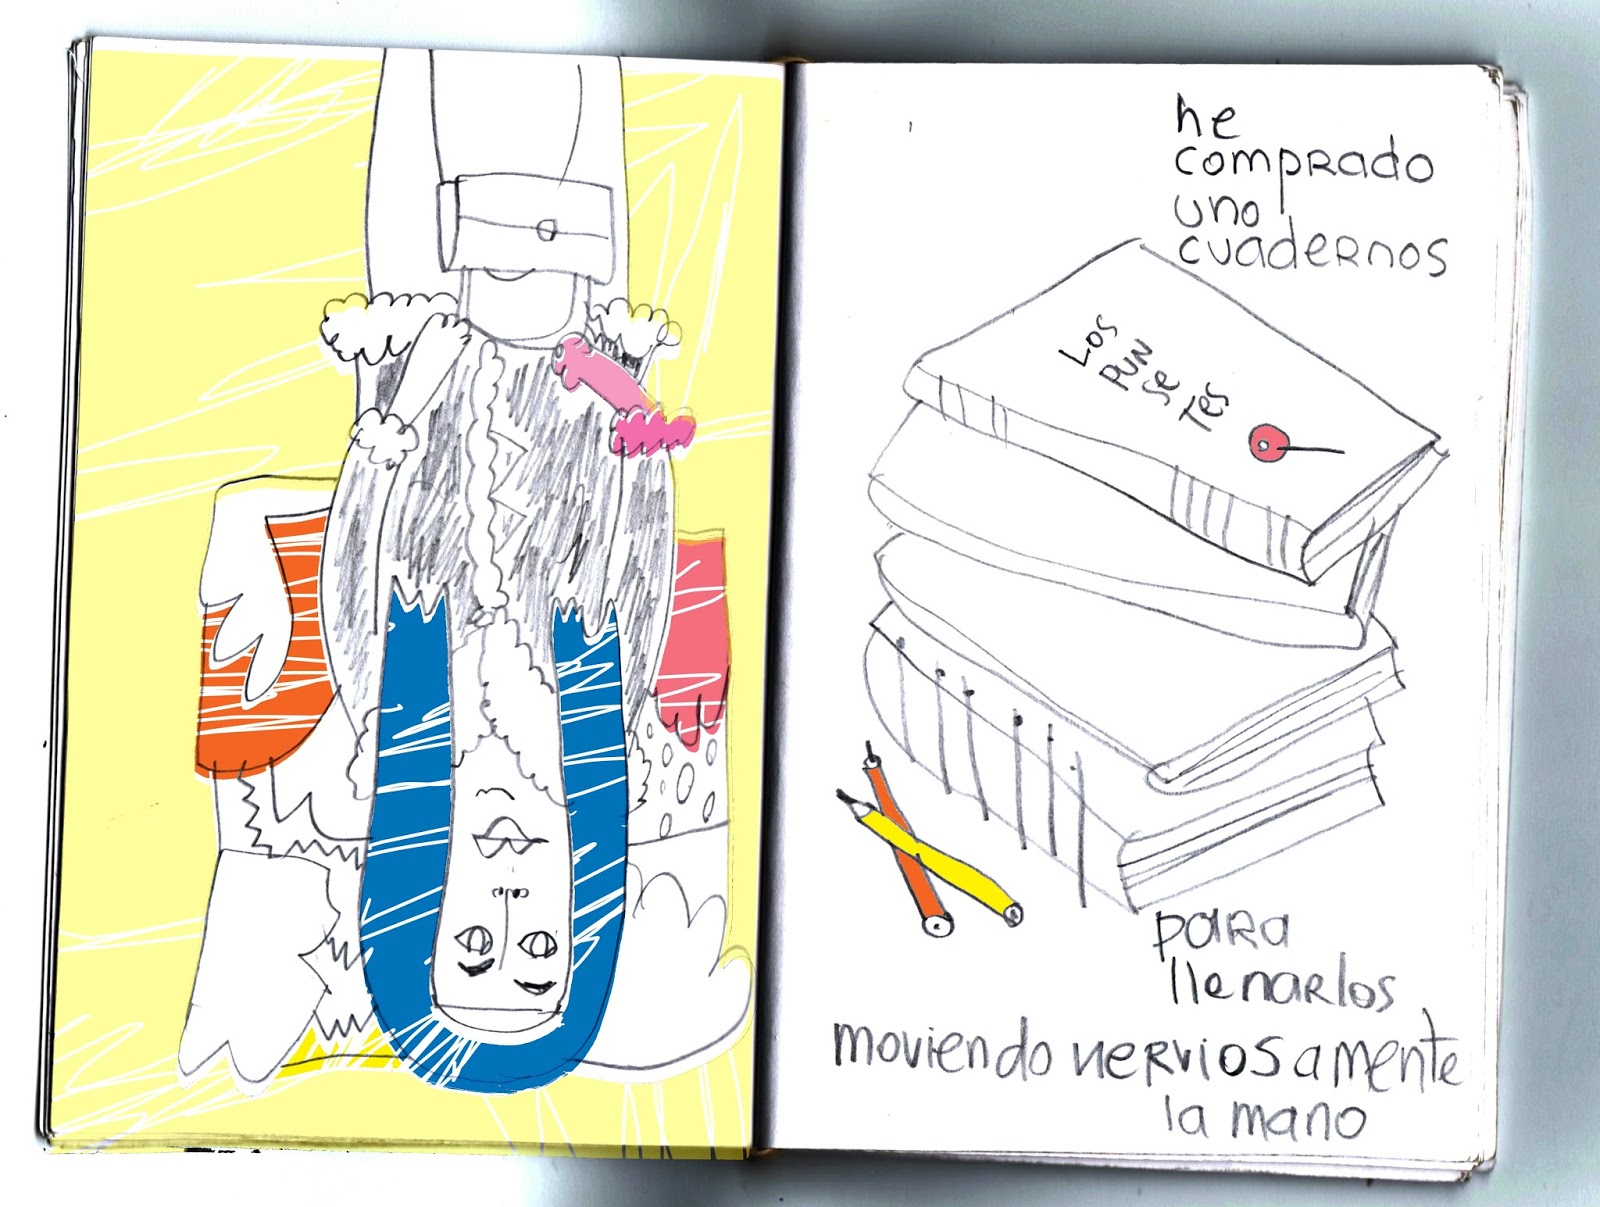 he
comprado
uno
cuadernos
Los
PUN
se
Tes
para
llenarlos
moviendo nerviosamente
la mano